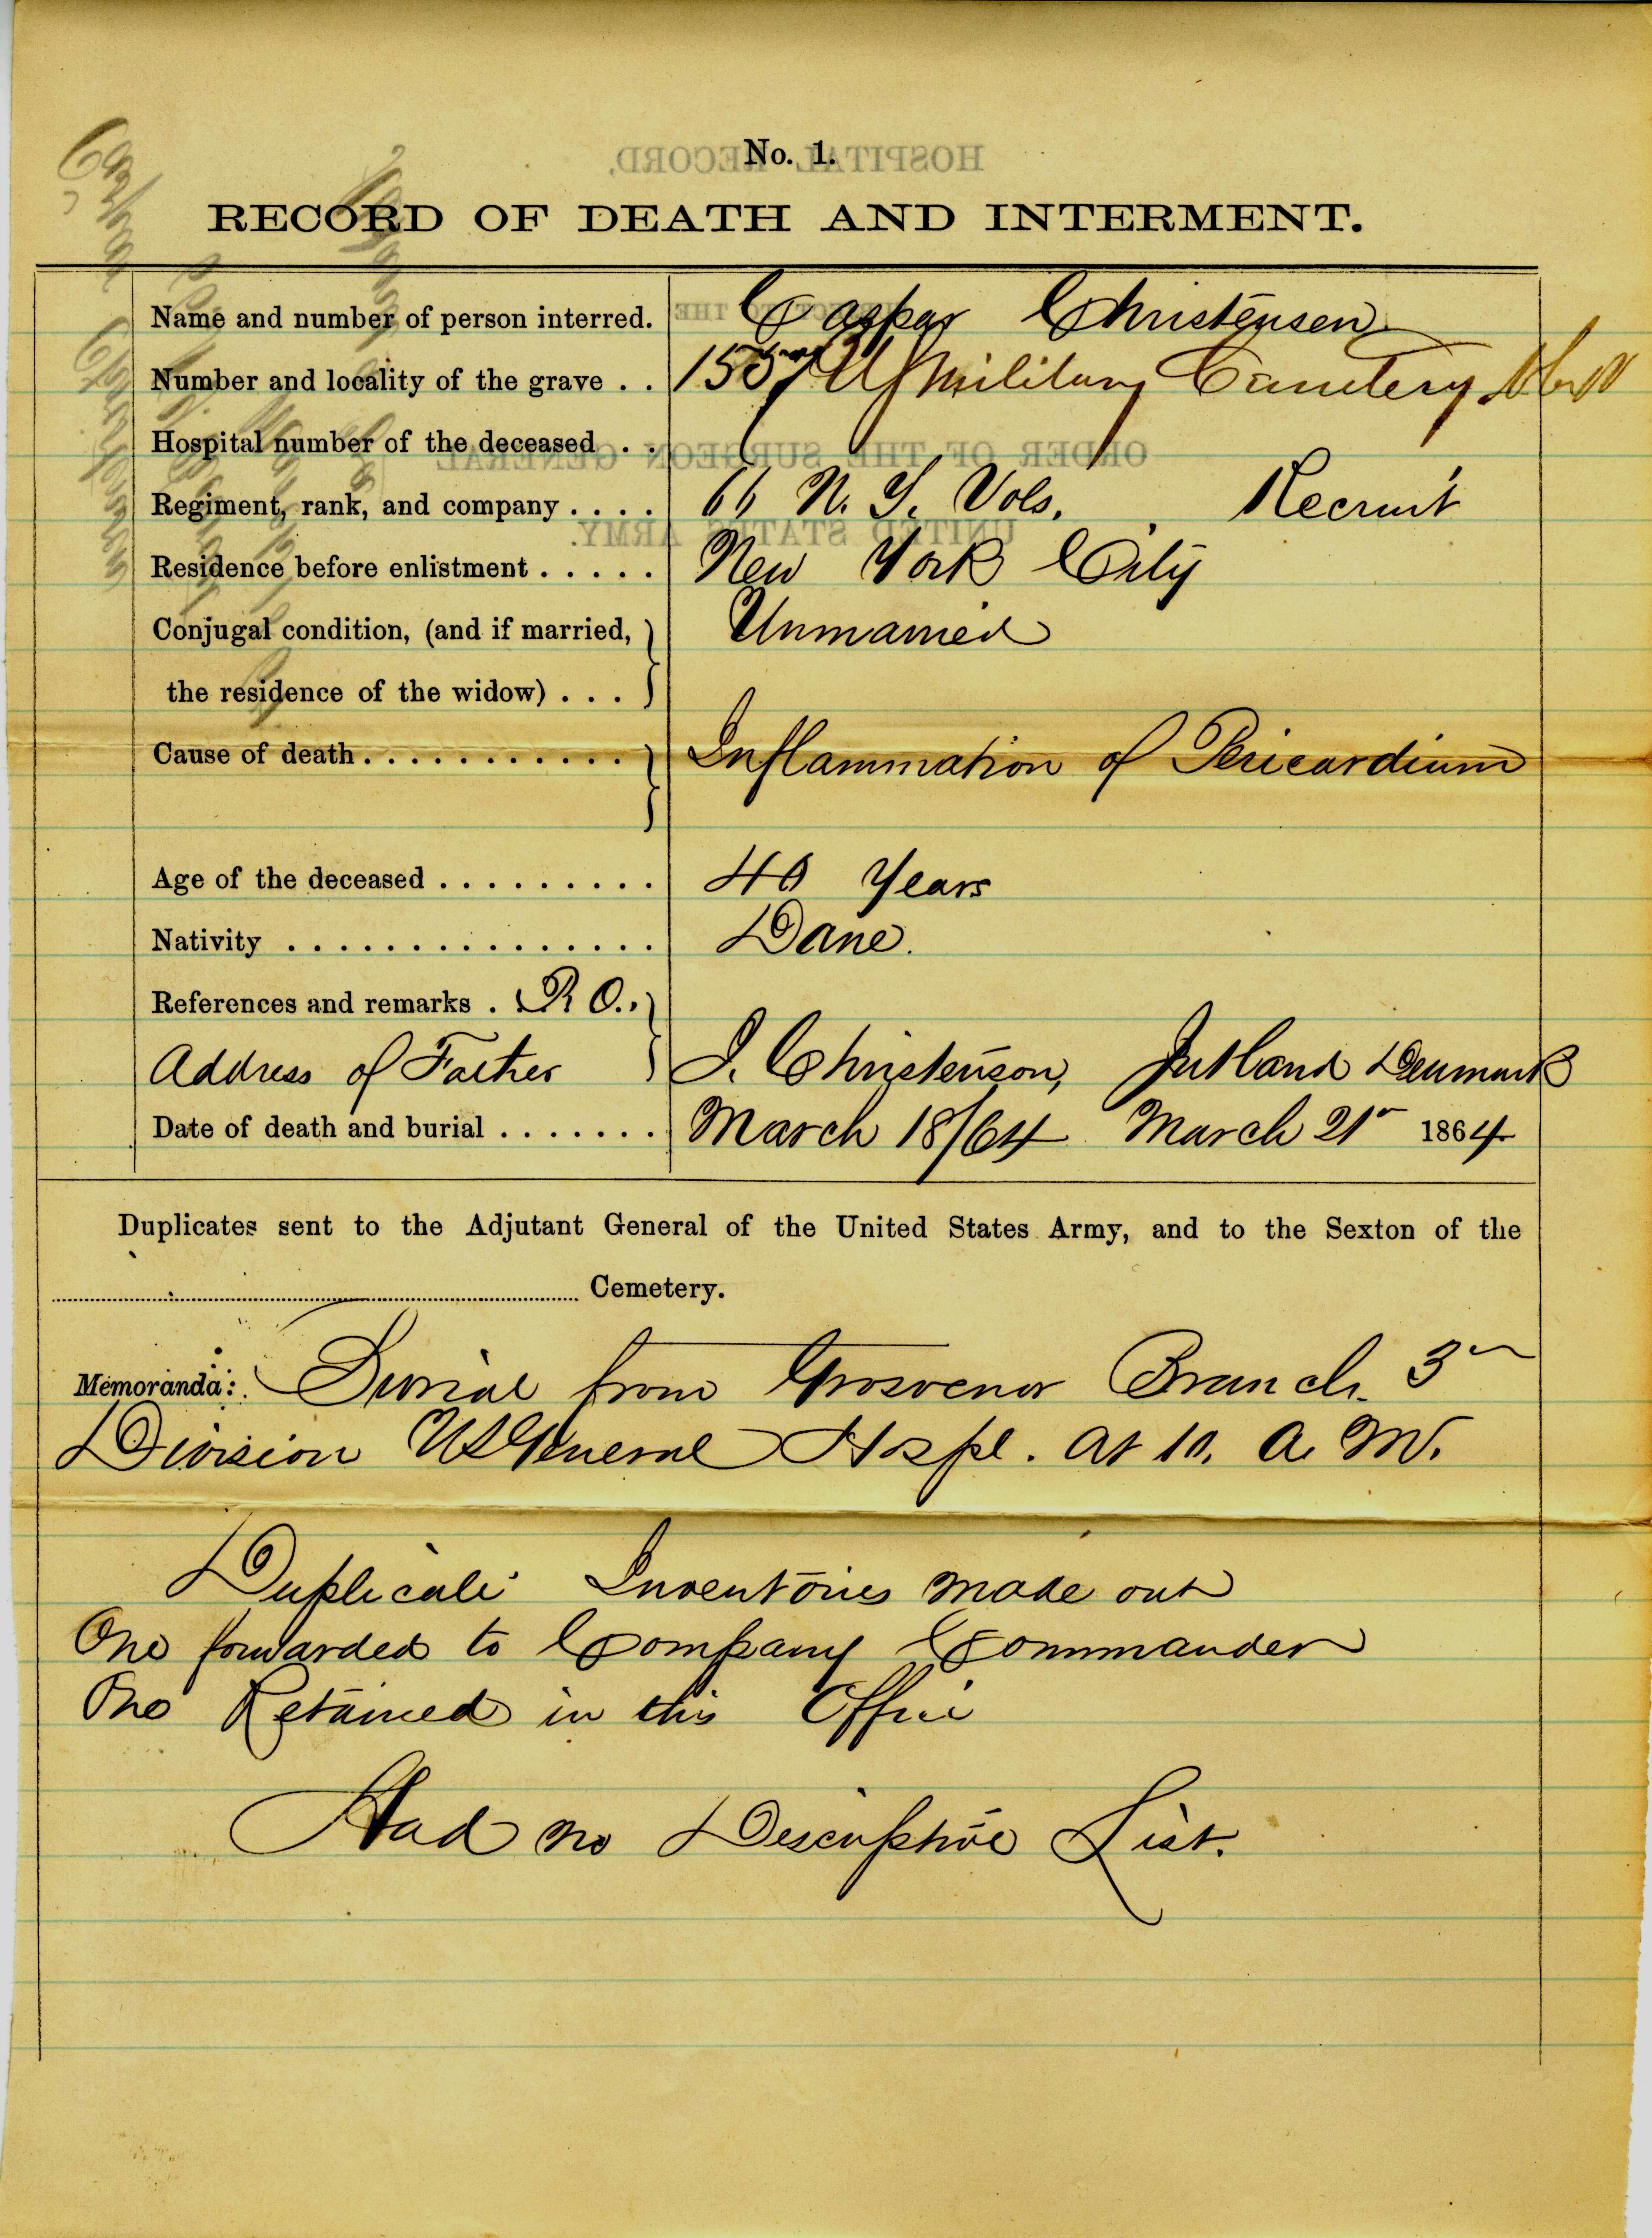 No. 1.
RECORD OF DEATH AND INTERMENT.
Name and number of person interred. Caspar Christensen
Number and locality of the grave . . Military Cemetery
Hospital number of the deceased . .
Regiment, rank, and company . . . . 66 N. Y. Vols. Recruit
Residence before enlistment . . . . . New York City
Conjugal condition, (and if married, Unmarried
the residence of the widow) . . .
Cause of death . . . . . . . . . . . . Inflammation of Pericardium
Age of the deceased . . . . . . . . . 40 Years
Nativity . . . . . . . . . . . . . . . Dane.
References and remarks . P. O.,
Address of Father J. Christenson, Jutland Denmark
Date of death and burial . . . . . . . March 18/64 March 21st 1864
Duplicates sent to the Adjutant General of the United States Army, and to the Sexton of the
Cemetery.
Memoranda: Burial from Grosvenor Branch. 3rd
Division US General Hospl. at 10. A. M.
Duplicate Inventories made out
One forwarded to Company Commander
One Retained in this Office
Had no Descriptive List.